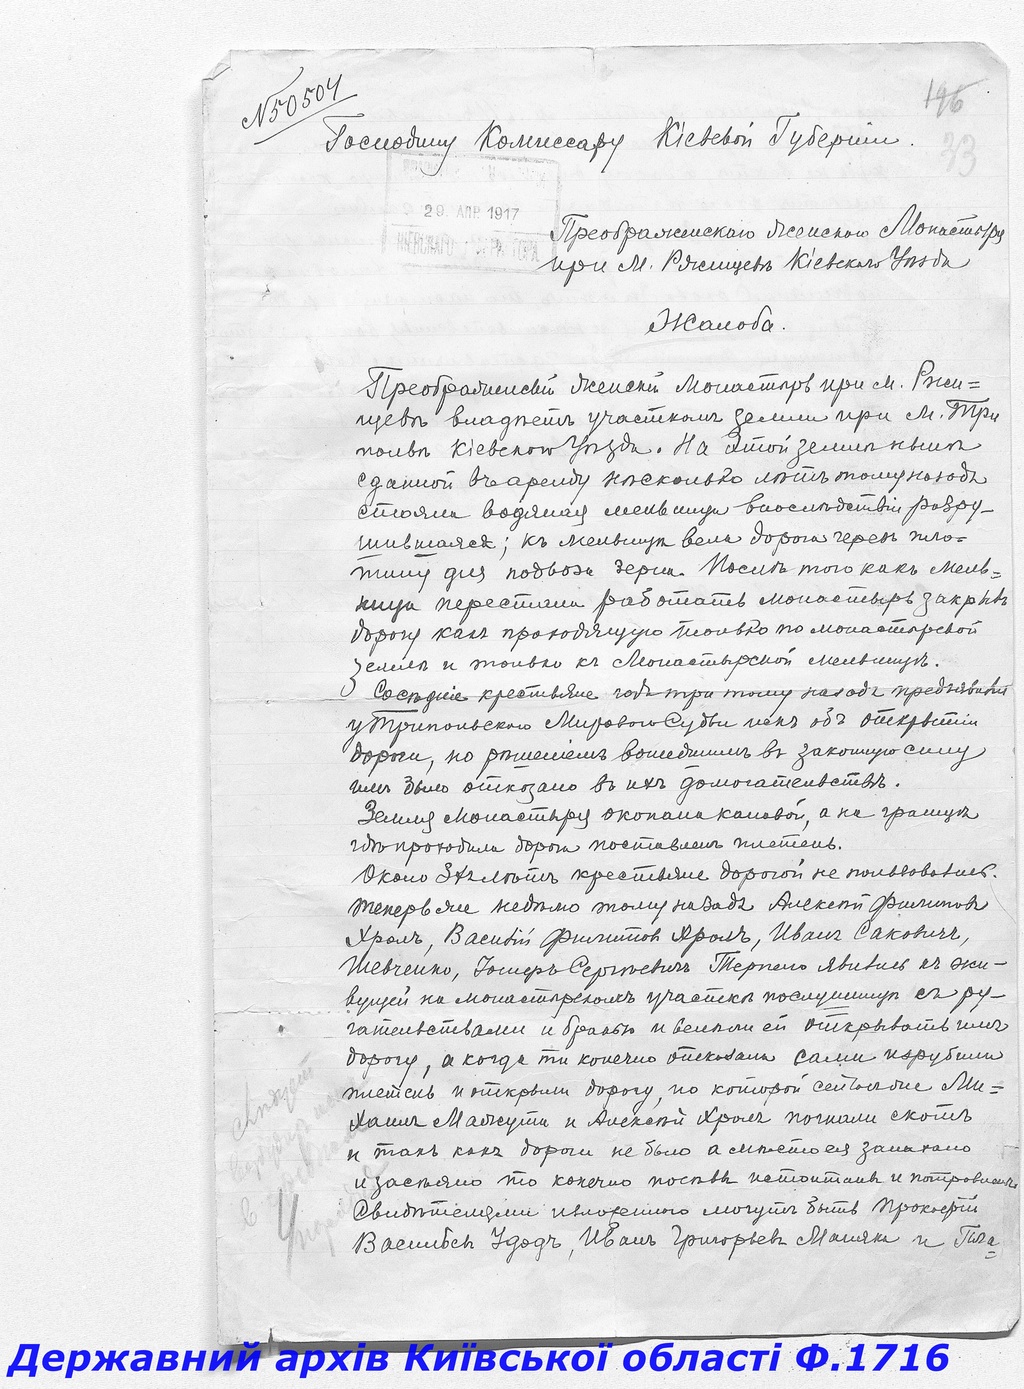 №50504
196
33
Господину Комиссару Кіевской Губерніи.
29 АПР 1917
КІЕВСКАГО
Преображенскаго Женскаго Монастыря
при м. Ржищевѣ Кіевскаго Уѣзда
Жалоба.
Преображенскій Женскій Монастырь при м. Ржи=
щевѣ владѣетъ участкомъ земли при м. Три
польѣ Кіевскаго Уѣзда. На этой землѣ нынѣ
сданной въ аренду нѣсколько лѣтъ тому назадъ
стояла водяная мельница впослѣдствіи разру-
шившаяся; къ мельницѣ вела дорога черезъ пло=
тину для подвоза зерна. Послѣ того какъ мель=
ница перестала работать монастырь закрылъ
дорогу какъ проходящую только по монастырской
землѣ и только къ Монастырской мельницѣ.
Сосѣдніе крестьяне года три тому назадъ предъявили
у Трипольскаго Мирового Судьи искъ объ открытіи
дороги, но рѣшеніемъ вошедшимъ въ законную силу
имъ было отказано въ ихъ домогательствѣ.
Земля Монастыря окопана канавой, а на границѣ
гдѣ проходила дорога поставленъ плетень.
Около 3хъ лѣтъ крестьяне дорогой не пользовались.
Теперь же недѣлю тому назадъ Алексѣй Филиповъ
Хромъ, Василій Филиповъ Хромъ, Иванъ Саковичъ,
Шевченко, Сергѣевичъ Терпело явились къ жи-
вущей на монастырскомъ участкѣ послушницѣ съ ру-
гательствами и бранью и велѣли ей открывать имъ
дорогу, а когда та конечно отказала сами изрубили
плетень и открыли дорогу, по которой сейчасъ же Ми=
хаилъ Мажута и Алексѣй Хромъ погнали скотъ
и такъ какъ дороги не было а мѣсто ея запахано
и засѣяно то конечно посѣвы истоптали и потравили.
Свидѣтелями изложеннаго могутъ быть Прокофій
Васильевъ Удодъ, Иванъ Григорьевъ Маляка и Пла=
Державний архів Київської області Ф.1716